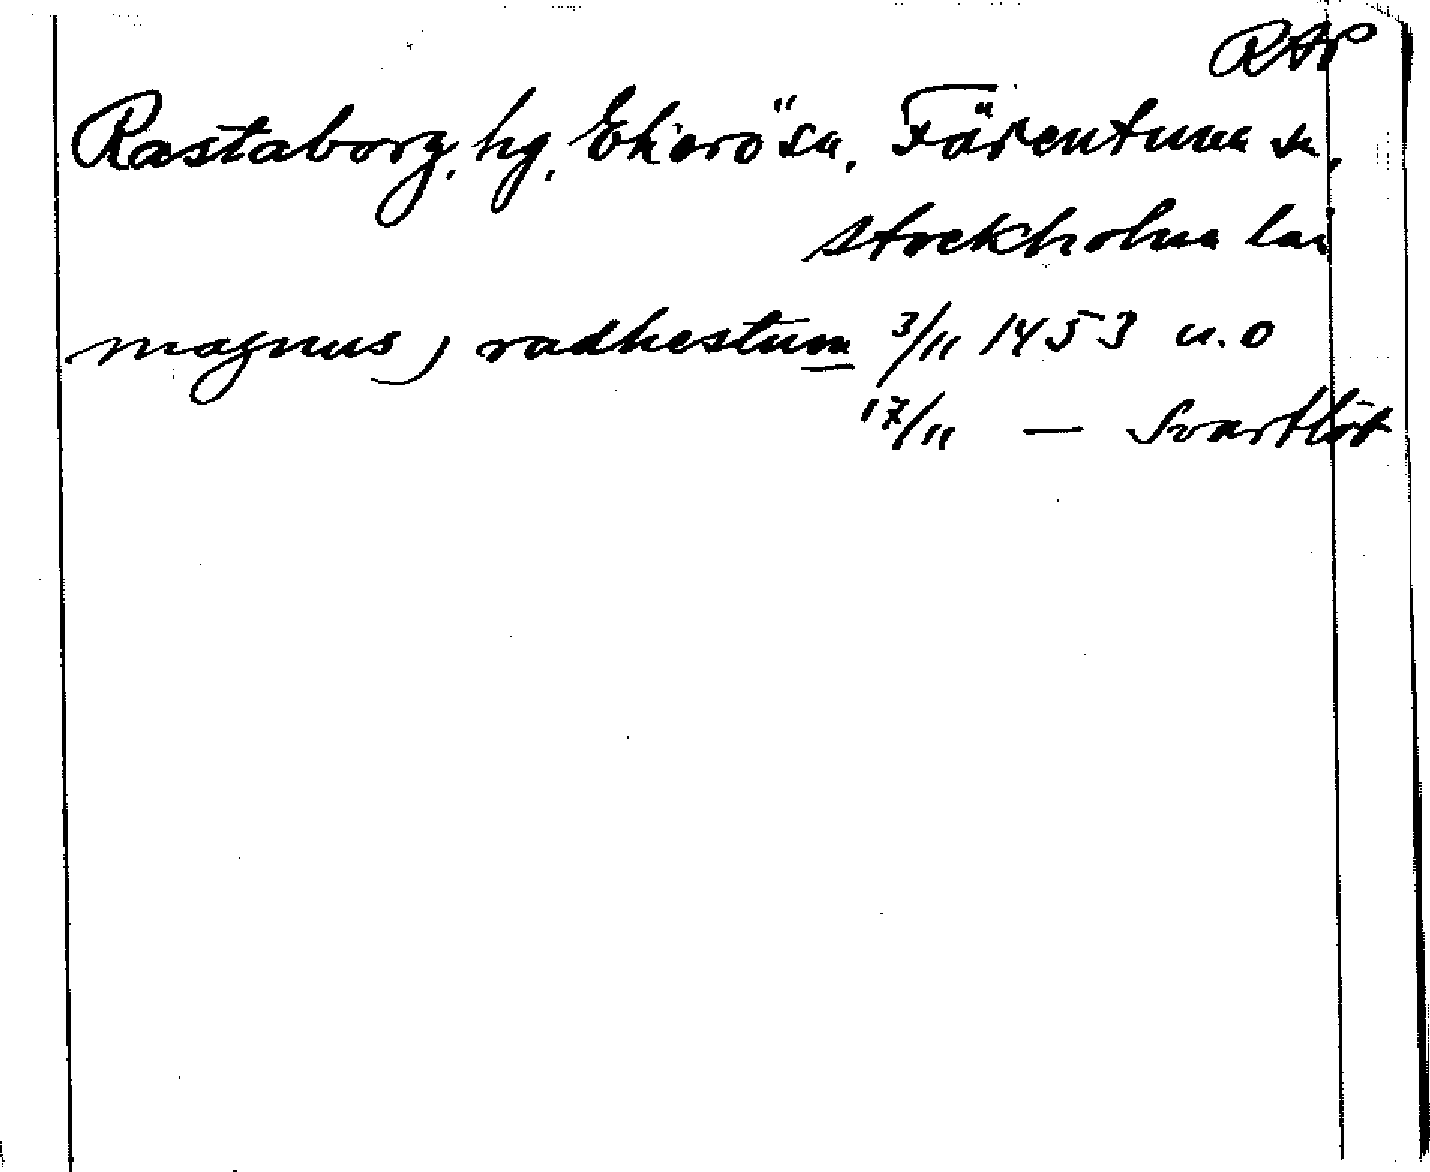 RAP
Rastaborg, hg, Ekerö sn, Färentuna sn,
Stockholms län
magnus) radhestum 3/11 1453 u.o
17/11 — Svartlöt